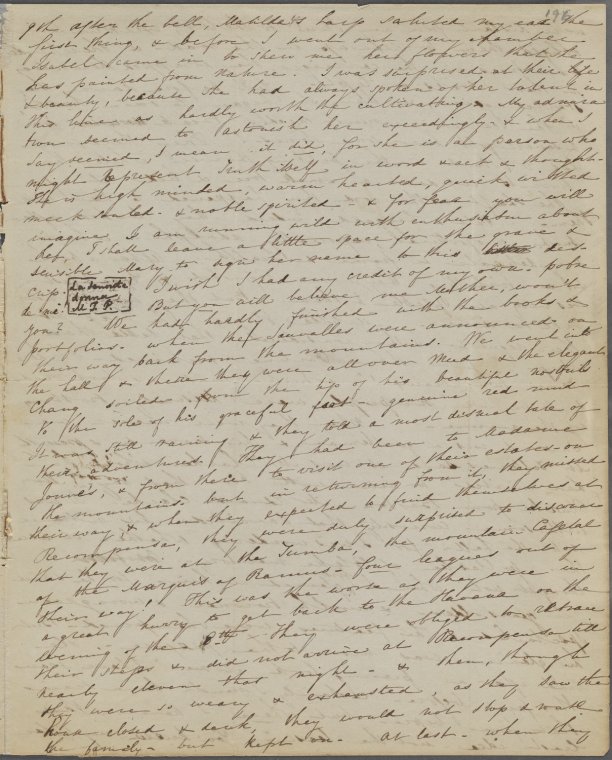 196
9th after the bell, Matilde's harp saluted my ear the
first thing, & before I went out of my chamber
Isabel came in to shew me her flowers that she
has painted from nature. I was surprised at their life
& beauty, because she had always spoken of her talent in
this line as hardly worth the cultivating. My admira
tion seemed to astonish her exceedingly & when I
say seemed, I mean it did, for she is a person who
might represent Truth itself in word & act & thought.
She is high minded, warm hearted, quick witted
meek souled & noble spirited & for fear you will
imagine I am running wild with enthusiasm about
her, I shall leave a little space for the grave &
sensible Mary to sign her name to this des-
crip
La Senorita
donna
M. T. P.
I wish I had any credit of my own. pobre
to me. But you will believe me Mother, won't
you? We had hardly finished with the books &
portfolios when the Lavalles were announced on
their way back from the mountains. We went into
the hall & there they were all over mud & the elegant
Chang soiled from the tip of his beautiful nostrils
to the sole of his graceful foot in genuine red mud
It was still raining & they told a most dismal tale of
their adventures. They had been to Madame
Jouve's, & from there to visit one of their estates on
the mountains but in returning from it, they missed
their way & when they expected to find themselves at
Recompensa, they were duly surprised to discover
that they were at the Tumba, the mountain Cafetal
of the Marquis of Ramos four leagues out of
their way! This was the worse as they were in
a great hurry to get back to the Havana on the
evening of the 8th They were obliged to retrace
their steps & did not arrive at Recompensa till
nearly eleven that night & then, though
they were so weary & exhausted, as they saw the
house closed & dark, they would not stop & wake
the family but kept on at last when they